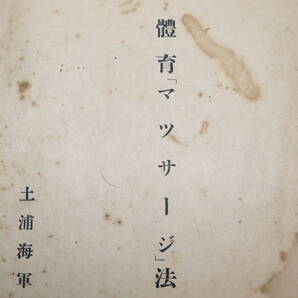 體育「マツサージ」法
土浦海軍